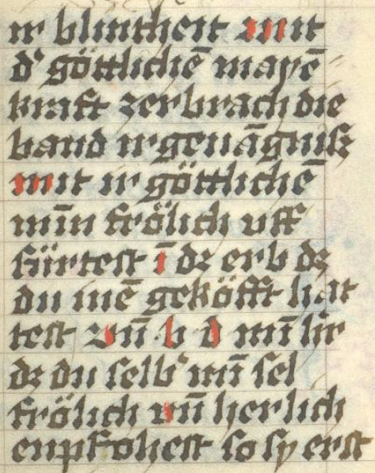 ir blintheit mit
d' göttlichē mayē
kraft zerbrach die
band ir genāgniß
mit ir göttlichē
mīn frölich uff
fürtest ī dz erb dz
du inē geköfft hat
test vn̄ h d mī hr
dz du selb' mī sel
frölich vn̄ herlich
enpfohest so sy erst